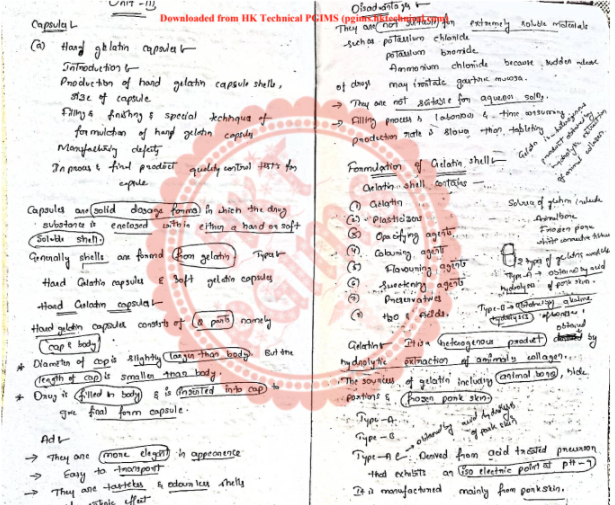 Unit - III
Downloaded from HK Technical PGIMS (pgims.hktechnical.com)
Capsules
(a) Hard gelatin capsules
Introduction
Production of hard gelatin capsule shells,
size of capsule
Filling & finishing & special technique of
formulation of hard gelatin capsule
Manufacturing defects
In process & final product quality control tests for
capsule
Capsules are solid dosage forms in which the drug
substance is enclosed within either a hard or soft
soluble shell.
Generally shells are formed from gelatin. Types
Hard Gelatin capsules & Soft gelatin capsules
Hard Gelatin capsules
Hard gelatin capsules consists of 2 parts namely
Cap & body
* Diameter of cap is slightly larger than body. But the
length of cap is smaller than body.
* Drug is filled in body & is inserted into cap to
give final form capsule.
Adv
→ They are more elegant in appearance
→ Easy to transport
→ They are tasteless & odourless shells
effect
Disadvantages
They are not suitable for extremely soluble materials
such as potassium chloride
potassium bromide
Ammonium chloride because sudden release
of drugs may irritate gastric mucosa.
→ They are not suitable for aqueous soln.
→ Filling process is laborious & time consuming
production rate is slower than tableting
Gelatin is heterogenous
product obtained by
hydrolytic extraction
of animal collagen
Formulation of Gelatin shell
Gelatin shell contains
(1) Gelatin
(2) Plasticizers
(3) Opacifying agents
(4) Colouring agents
(5) Flavouring agents
(6) Sweetening agents
(7) Preservatives
(8) H2O & acids.
Sources of gelatin include
Animal bone
Frozen pork
white connective tissue
2 types of gelatin available
Type-A → obtained by acid
hydrolysis of pork skin.
Type-B → obtained by alkaline
hydrolysis of bones
Gelatin: It is a heterogenous product obtained by
hydrolytic extraction of animals collagen.
The sources of gelatin including animal bone, hide
portions & frozen pork skin.
Type-A
Type-B
obtained by acid hydrolysis
of pork skin
Type-A Derived from acid treated precursor
that exhibits an iso electric point at pH-9
It is manufactured mainly from pork skin.